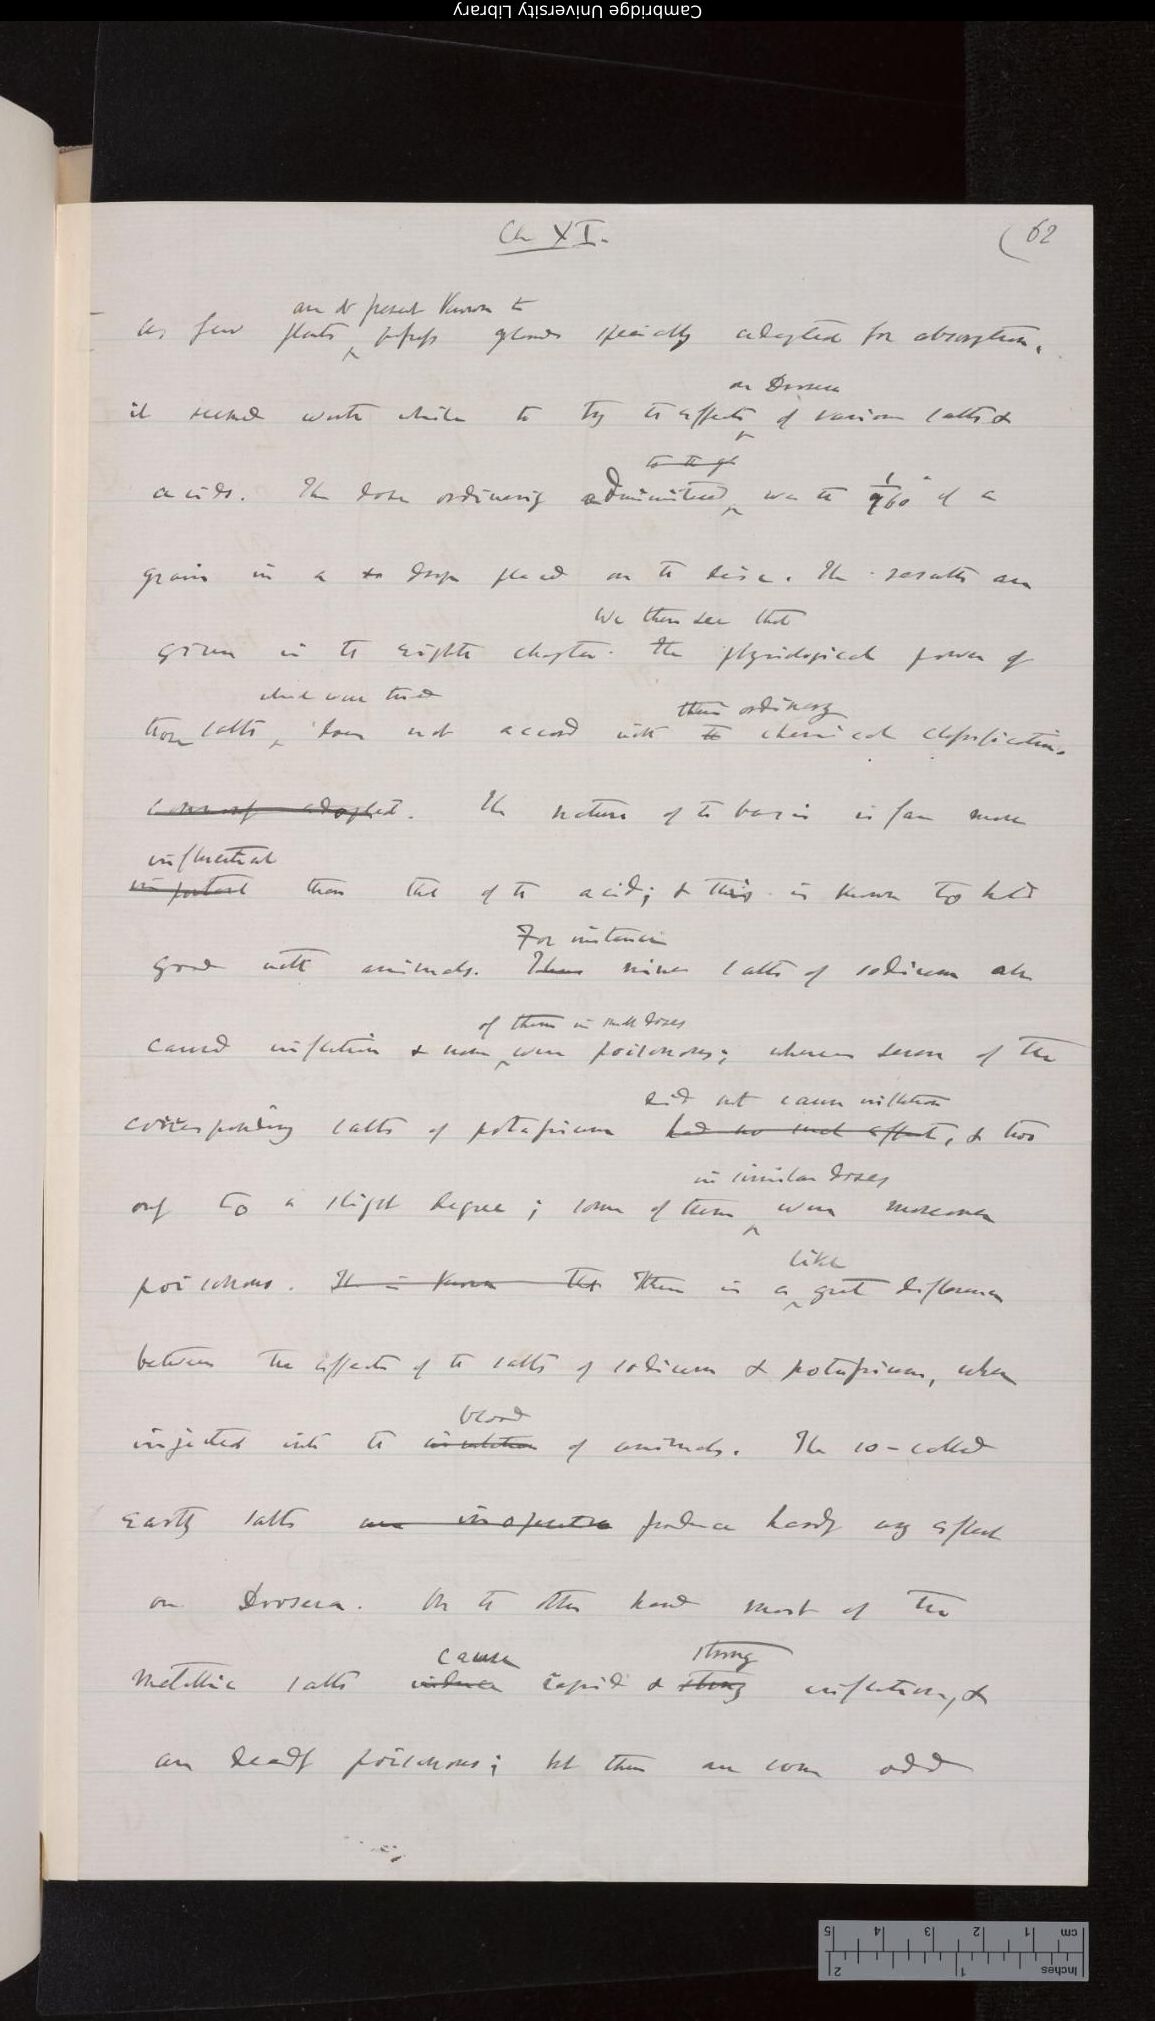 Cambridge University Library
Ch XI.
(62
are at present known to
As few plants possess glands specially adapted for absorption,
on Drosera
it seemed worth while to try the effects of various salts &
to the gl
acids. The dose ordinarily administered was the 1/960 of a
grain in a drop placed on the disc. The results are
We then see that
given in the eighth chapter. the physiological power of
which were tried
their ordinary
those salts, does not accord with the chemical classification.
commonly adopted. The nature of the base is far more
influential
important than that of the acid; & this is known to hold
For instance
good with animals. Thus nine salts of sodium all
of them in small doses
caused inflection & none were poisonous; whereas seven of the
did not cause inflection
corresponding salts of potassium had no such effect, & two
in similar doses
only to a slight degree; some of them were moreover
like
poisonous. It is known that There is a great difference
between the effects of the salts of sodium & potassium, when
blood
injected into the circulation of animals. The so-called
earthy salts are inoperative produce hardly any effect
on Drosera. On the other hand most of the
cause
strong
metallic salts induce rapid & strong inflection, &
are deadly poisonous; but there are some odd
Inches 1 2
cm 1 2 3 4 5